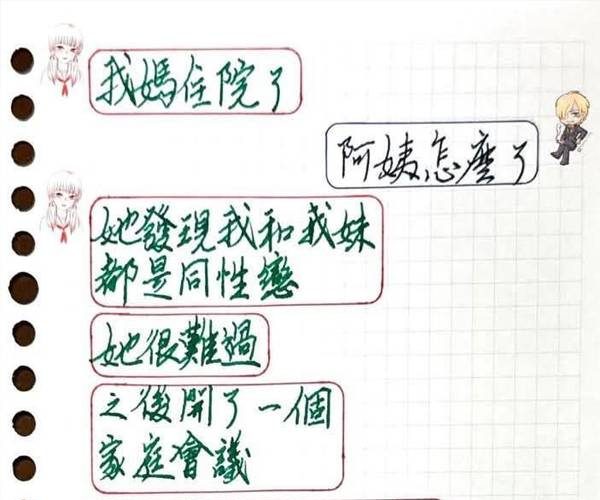 我媽住院了
阿姨怎麼了
她發現我和我妹
都是同性戀
她很難過
之後開了一個
家庭會議